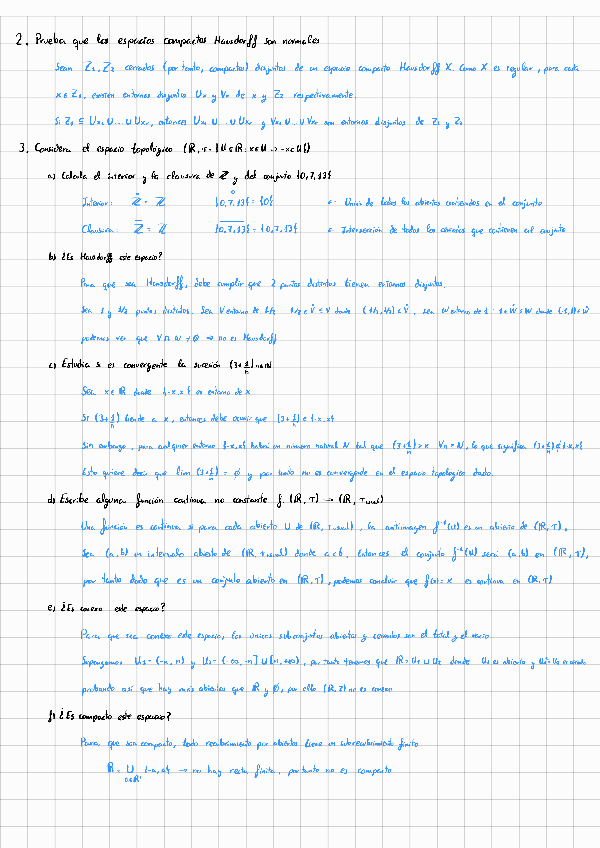 2. Prueba que los espacios compactos Hausdorff son normales
Sean Z₁, Z₂ cerrados (por tanto, compactos) disjuntos de un espacio compacto Hausdorff X. Como X es regular, para cada
x ∈ Z₁, existen entornos disjuntos Ux y Vx de x y Z₂ respectivamente.
Si Z₁ ⊆ Ux₁ ∪ ... ∪ Uxr, entonces Ux₁ ∪ ... ∪ Uxr y Vx₁ ∪ ... ∪ Vxr son entornos disjuntos de Z₁ y Z₂
3. Considera el espacio topológico (ℝ, τ = {U ⊆ ℝ : x ∈ U → -x ∈ U})
a) Calcula el interior y la clausura de ℤ y del conjunto {0, 7, 13}
Interior: ℤ̊ = ℤ {0,7,13}° = {0} ← Unión de todos los abiertos contenidos en el conjunto
Clausura: ℤ̅ = ℤ {0,7,13} = {0,7,13} ← Intersección de todos los cerrados que contienen al conjunto
b) ¿Es Hausdorff este espacio?
Para que sea Hausdorff, debe cumplir que 2 puntos distintos tienen entornos disjuntos.
Sea 1 y 1/2 puntos distintos. Sea V entorno de 1/2 1/2 ∈ V̊ ⊆ V donde (-1/2, 1/2) ∈ V̊, sea W entorno de 1 : 1 ∈ W̊ ⊆ W donde (-1,1) ∈ W̊
podemos ver que V ∩ W ≠ ∅ → no es Hausdorff
c) Estudia si es convergente la sucesión (3+1/n) n∈ℕ
Sea x ∈ ℝ donde {-x,x} es entorno de x
Si (3+1/n) tiende a x, entonces debe ocurrir que (3+1/n) ∈ {-x,x}
Sin embargo, para cualquier entorno {-x,x} habrá un número natural N tal que (3+1/n) > x ∀n = N, lo que significa (3+1/n) ∉ {-x,x}
Esto quiere decir que lim (3+1/n) = ∅ y por tanto no es convergente en el espacio topológico dado.
d) Escribe alguna función continua no constante f: (ℝ, τ) → (ℝ, τusual)
Una función es continua si para cada abierto U de (ℝ, τusual), la antiimagen f⁻¹(U) es un abierto de (ℝ, τ).
Sea (a,b) un intervalo abierto de (ℝ, τusual) donde a < b. Entonces el conjunto f⁻¹(U) será (a,b) en (ℝ, τ),
por tanto dado que es un conjunto abierto en (ℝ, τ), podemos concluir que f(x) = x es continua en (ℝ, τ)
e) ¿Es conexo este espacio?
Para que sea conexo este espacio, los únicos subconjuntos abiertos y cerrados son el total y el vacío
Supongamos U₁ = (-n, n) y U₂ = (-∞, -n] ∪ [n, +∞), por tanto tenemos que ℝ = U₁ ∪ U₂ donde U₁ es abierto y
probando así que hay más abiertos que ℝ y ∅, por ello (ℝ, τ) no es conexo
f) ¿Es compacto este espacio?
Para que sea compacto, todo recubrimiento por abiertos tiene un subrecubrimiento finito
ℝ = ∪ {-a, a} → no hay recub. finito, por tanto no es compacto
a∈ℝ